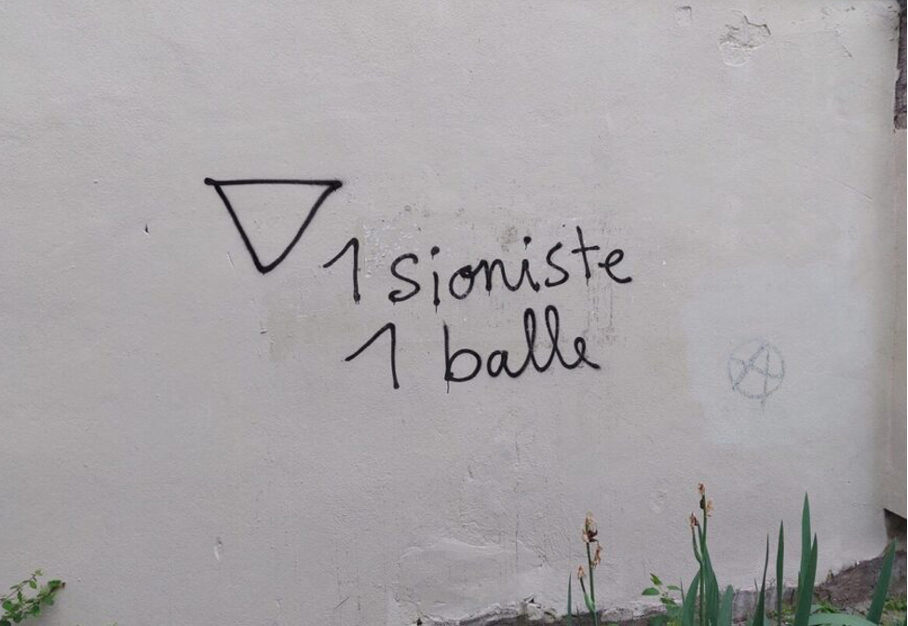 1 sioniste
1 balle